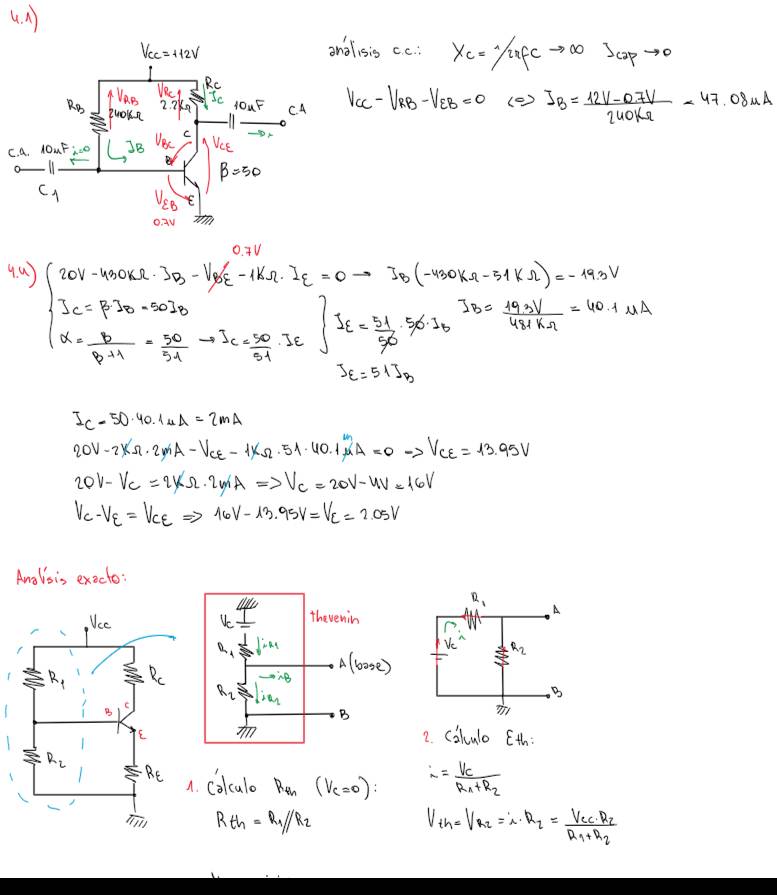 4.1)
Vcc=+12V
RB
VRB
240KΩ
VRc
2.2KΩ
Rc
Ic
10μF
C.A
C.a. 10μF i=0
C1
IB
VBC
C
B
VCE
β=50
VEB
0.7V
E
análisis c.c.: Xc = 1/2πfC → ∞ Icap → 0
Vcc - VRB - VEB = 0 <=> IB = 12V-0.7V / 240KΩ = 47.08μA
4.4)
0.7V
20V - 430KΩ · IB - VBE - 1KΩ · IE = 0 → IB(-430KΩ - 51KΩ) = -19.3V
Ic = β·IB = 50IB
α = β / β+1 = 50/51 → Ic = 50/51 · IE
IE = 51/50 · 50 · IB
IE = 51IB
IB = 19.3V / 481KΩ = 40.1 μA
Ic = 50·40.1μA = 2mA
20V - 2KΩ · 2mA - VCE - 1KΩ · 51 · 40.1μA = 0 -> VCE = 13.95V
m
20V - Vc = 2KΩ · 2mA => Vc = 20V - 4V = 16V
Vc - VE = VCE => 16V - 13.95V = VE = 2.05V
Analísis exacto:
Vcc
R1
Rc
B
C
E
R2
RE
thevenin
Vc
R1
iR1
iB
A (base)
R2
iR2
B
1. Cálculo Rth (Vc=0):
Rth = R1//R2
R1
A
Vc
i
R2
B
2. Cálculo Eth:
i = Vc / R1+R2
Vth = VR2 = i·R2 = Vcc·R2 / R1+R2